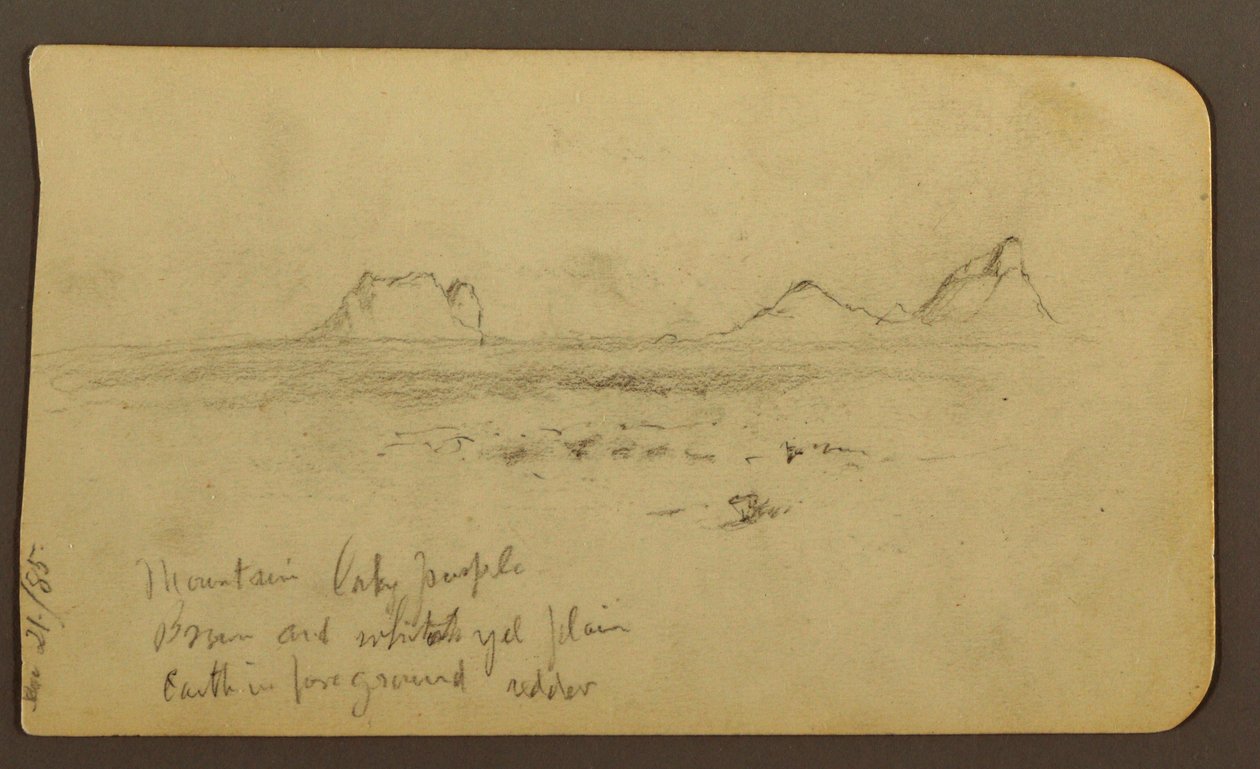 Mountain purple
Brown and whitish yel plain
Earth in foreground redder
21. / 85